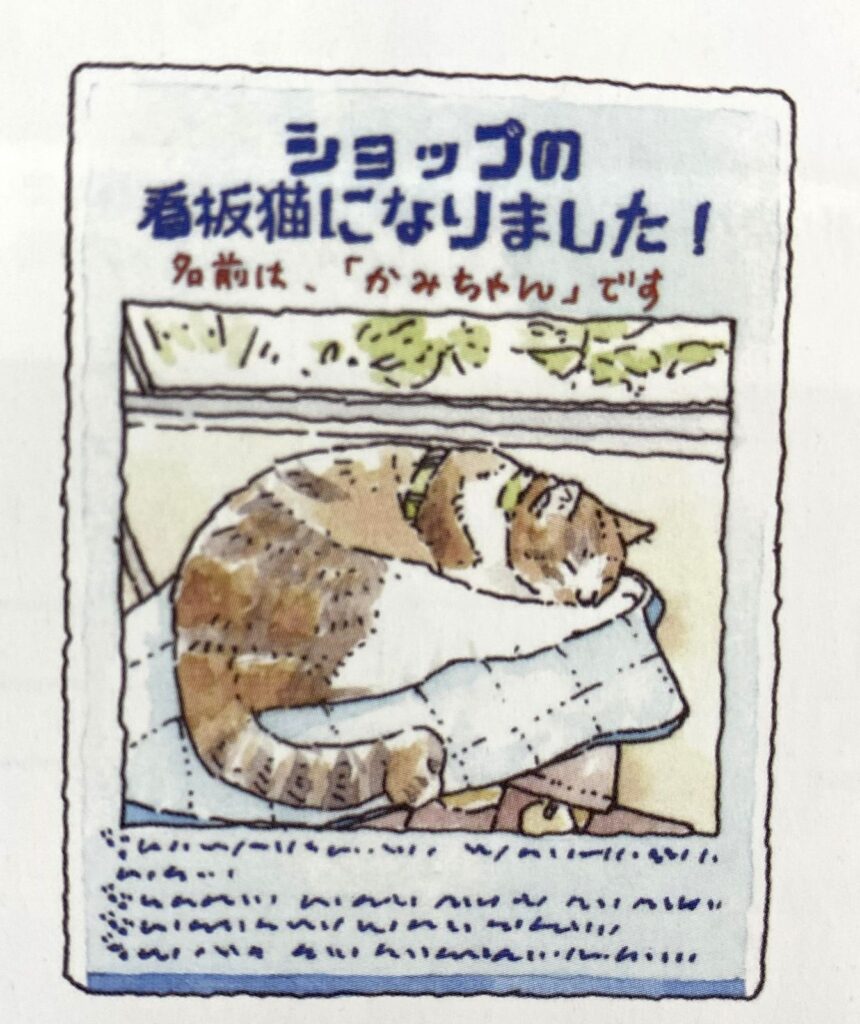 ショップの
看板猫になりました!
名前は、「かみちゃん」です